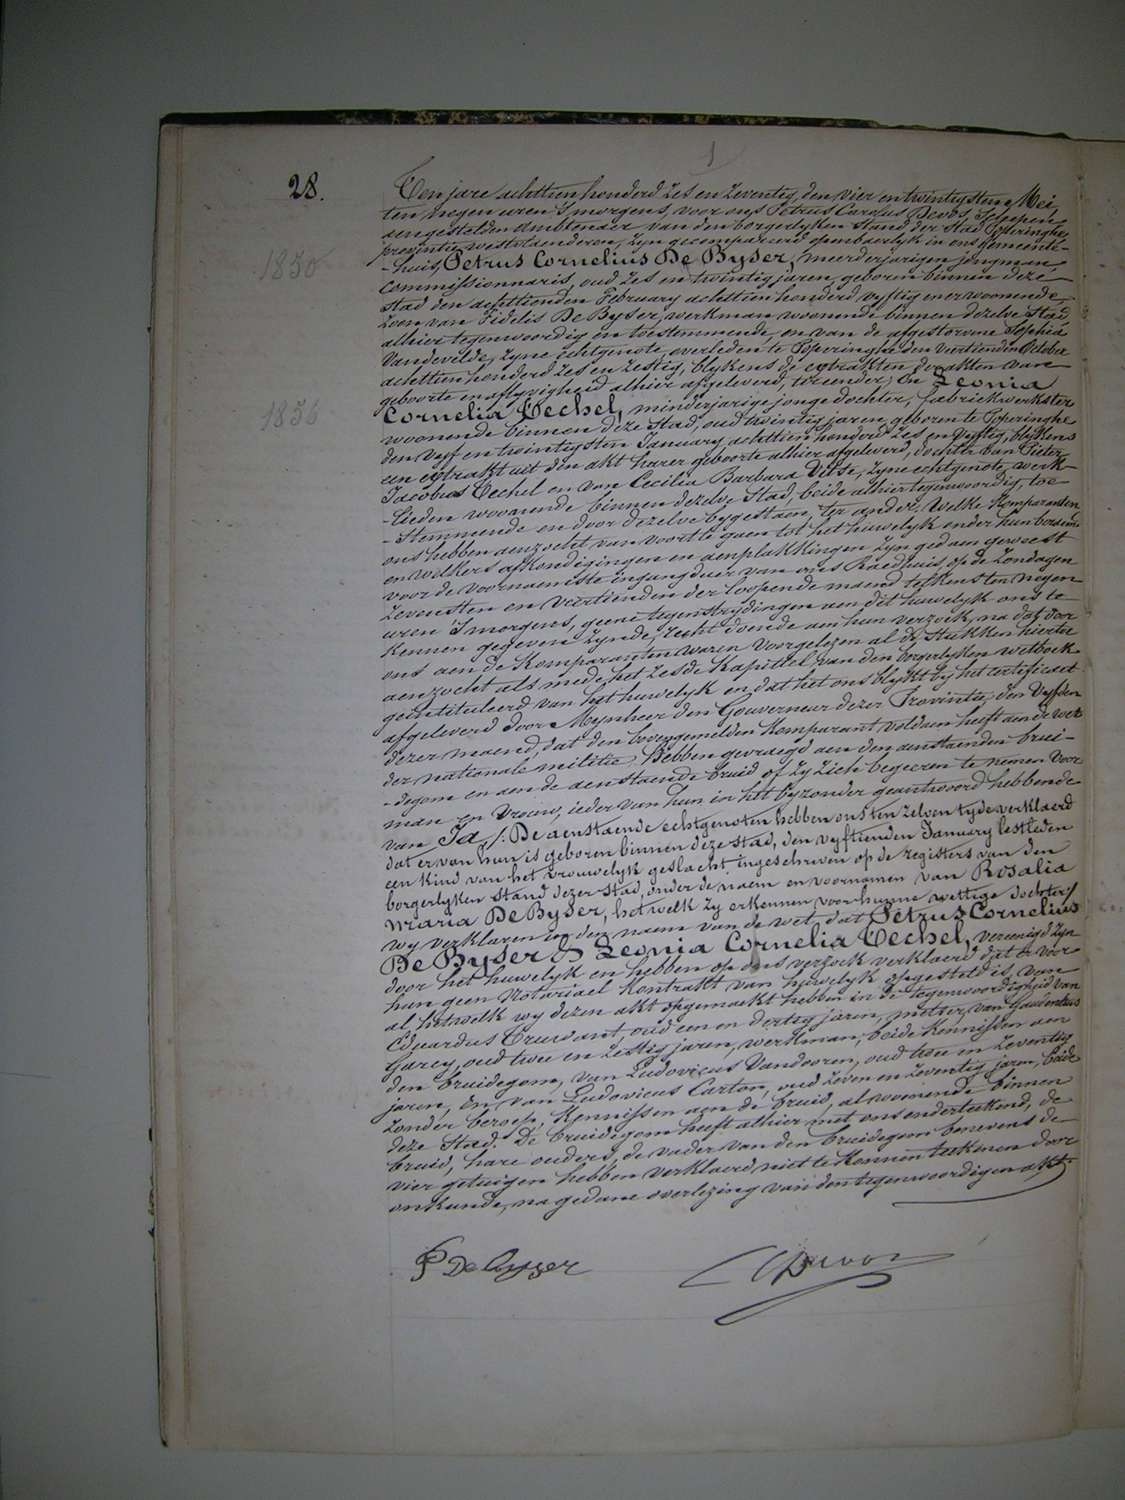 1
28.
Ten jare achttien honderd zes en zeventig, den vier en twintigsten Mei,
ten negen uren 's morgens, voor ons Petrus Carolus Devos, Schepen
aengestelden Ambtenaer van den borgerlyken stand der stad Poperinghe,
provintie westvlaenderen, zyn gecompareerd openbaerlyk in ons gemeente-
1850
-huis, Petrus Cornelius De Byser, meerderjarigen jongman,
commissionnaris, oud zes en twintig jaren, geboren binnen deze
stad den achttienden February achttien honderd vyftig en er woonende,
zoon van Fidelis De Byser, werkman woonende binnen dezelve stad,
alhier tegenwoordig en toestemmende, en van de afgestorvene Sophia
Vandevelde, zyne echtgenote, overleden te Poperinghe den veertienden October
achttien honderd zes en zestig, blykens de extrakten der akten van
geboorte en aflyvigheid alhier afgeleverd, ter eender; En Leonia
1856
Cornelia Techel, minderjarige jonge dochter, fabriekwerkster
woonende binnen deze stad, oud twintig jaren, geboren te Poperinghe
den vyf en twintigsten January achttien honderd zes en vyftig, blykens
een extrakt uit den akt harer geboorte alhier afgeleverd, dochter van Pieter
Jacobus Techel en van Cecilia Barbara Vitse, zyne echtgenote, werk-
-lieden woonende binnen dezelve stad, beide alhier tegenwoordig, toe-
-stemmende en door dezelve bygestaen, ter ander. Welke Komparanten
ons hebben aenzocht van voort te gaen tot het huwelyk onder hun beraemd
en welkers afkondigingen en aenplakkingen zyn gedaen geweest
voor de voornaemste ingangdeur van ons Raedhuis, op de zondagen
zevensten en veertienden der loopende maend telkensten negen
uren 's morgens, geene tegenstrydingen aen dit huwelyk ons te
kennen gegeven zynde, recht doende aen hun verzoek, na dat door
ons aen de Komparanten waren voorgelezen al de stukken hiertoe
aenzocht als mede het zesde Kapittel van den borgerlyken wetboek
geintituleerd van het huwelyk en dat het ons blykt by het certificaet
afgeleverd door Mynheer den Gouverneur dezer Provintie, den vyfden
dezer maend, dat den bovengemelden Komparant voldaen heeft aen de wet
der nationale militie; Hebben gevraegd aen den aenstaenden brui-
-degom en aen de aenstaende bruid of zy zich begeeren te nemen voor
man en vrouw, ieder van hun in het byzonder geantwoord hebbende
van Ja, /: De aenstaende echtgenoten hebben ons ten zelven tyde verklaerd
dat er van hun is geboren binnen deze stad, den vyftienden January lestleden
een kind van het vrouwelyk geslacht, ingeschreven op de registers van den
borgerlyken stand dezer stad, onder de naem en voornamen van Rosalia
Maria De Byser, hetwelk zy erkennen voor hunne wettige dochter/
wy verklaren in den naem van de wet, dat Petrus Cornelius
De Byser & Leonia Cornelia Techel, vereenigd zyn
door het huwelyk en hebben op ons verzoek verklaerd dat er voor
hun geen Notariael Kontrakt van huwelyk opgesteld is, van
al hetwelk wy dezen akt opgemaekt hebben in de tegenwoordigheid van
Eduardus Truwant, oud een en dertig jaren, metser, van Gaudentius
Garcy, oud twee en zestig jaren, werkman, beide kennissen aen
den bruidegom, van Ludovicus Vandooren, oud twee en zeventig
jaren, en van Ludovicus Carton, oud zeven en zeventig jaren, beide
zonder beroep, kennissen aen de bruid, al woonende binnen
deze Stad. De bruidegom heeft alhier met ons onderteekend, de
bruid, hare ouders, de vader van den bruidegom benevens de
vier getuigen hebben verklaerd niet te konnen teekenen door
onkunde, na gedane overlezing van den tegenwoordigen akt.
P De Byser
C Devos